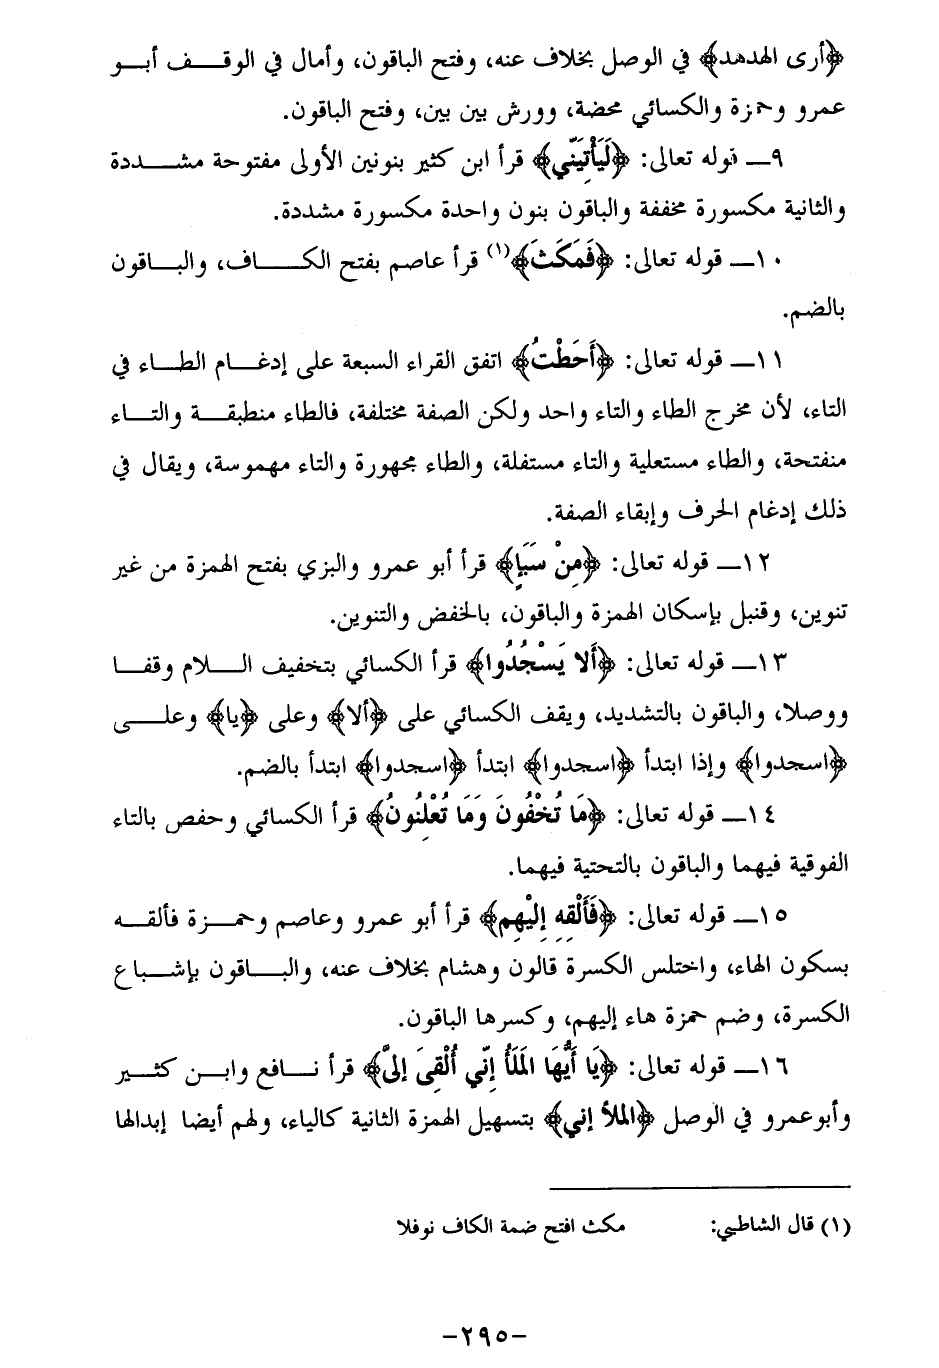 ﴿أرى الهدهد﴾ في الوصل بخلاف عنه، وفتح الباقون، وأمال في الوقف أبو
عمرو وحمزة والكسائي محضة، وورش بين بين، وفتح الباقون.
٩ــ قوله تعالى: ﴿لَيَأْتِيَنّي﴾ قرأ ابن كثير بنونين الأولى مفتوحة مشددة
والثانية مكسورة مخففة والباقون بنون واحدة مكسورة مشددة.
١٠ــ قوله تعالى: ﴿فَمَكَثَ﴾(١) قرأ عاصم بفتح الكاف، والباقون
بالضم.
١١ــ قوله تعالى: ﴿أَحَطْتُ﴾ اتفق القراء السبعة على إدغام الطاء في
التاء، لأن مخرج الطاء والتاء واحد ولكن الصفة مختلفة، فالطاء منطبقة والتاء
منفتحة، والطاء مستعلية والتاء مستفلة، والطاء مجهورة والتاء مهموسة، ويقال في
ذلك إدغام الحرف وإبقاء الصفة.
١٢ــ قوله تعالى: ﴿مِنْ سَبَإٍ﴾ قرأ أبو عمرو والبزي بفتح الهمزة من غير
تنوين، وقنبل بإسكان الهمزة والباقون، بالخفض والتنوين.
١٣ــ قوله تعالى: ﴿أَلا يَسْجُدُوا﴾ قرأ الكسائي بتخفيف اللام وقفا
ووصلا، والباقون بالتشديد، ويقف الكسائي على ﴿ألا﴾ وعلى ﴿يا﴾ وعلى
﴿اسجدوا﴾ وإذا ابتدأ ﴿اسجدوا﴾ ابتدأ ﴿اسجدوا﴾ ابتدأ بالضم.
١٤ــ قوله تعالى: ﴿مَا تُخْفُونَ وَمَا تُعْلِنُونُ﴾ قرأ الكسائي وحفص بالتاء
الفوقية فيهما والباقون بالتحتية فيهما.
١٥ــ قوله تعالى: ﴿فَأَلْقِهِ إِلَيْهِم﴾ قرأ أبو عمرو وعاصم وحمزة فألقه
بسكون الهاء، واختلس الكسرة قالون وهشام بخلاف عنه، والباقون بإشباع
الكسرة، وضم حمزة هاء إليهم، وكسرها الباقون.
١٦ــ قوله تعالى: ﴿يَا أَيُّهَا المَلَأُ إِنّي أُلْقِىَ إِلىَّ﴾ قرأ نافع وابن كثير
وأبوعمرو في الوصل ﴿الملأ إني﴾ بتسهيل الهمزة الثانية كالياء، ولهم أيضا إبدالها
(١) قال الشاطبي: مكث افتح ضمة الكاف نوفلا
-٢٩٥-